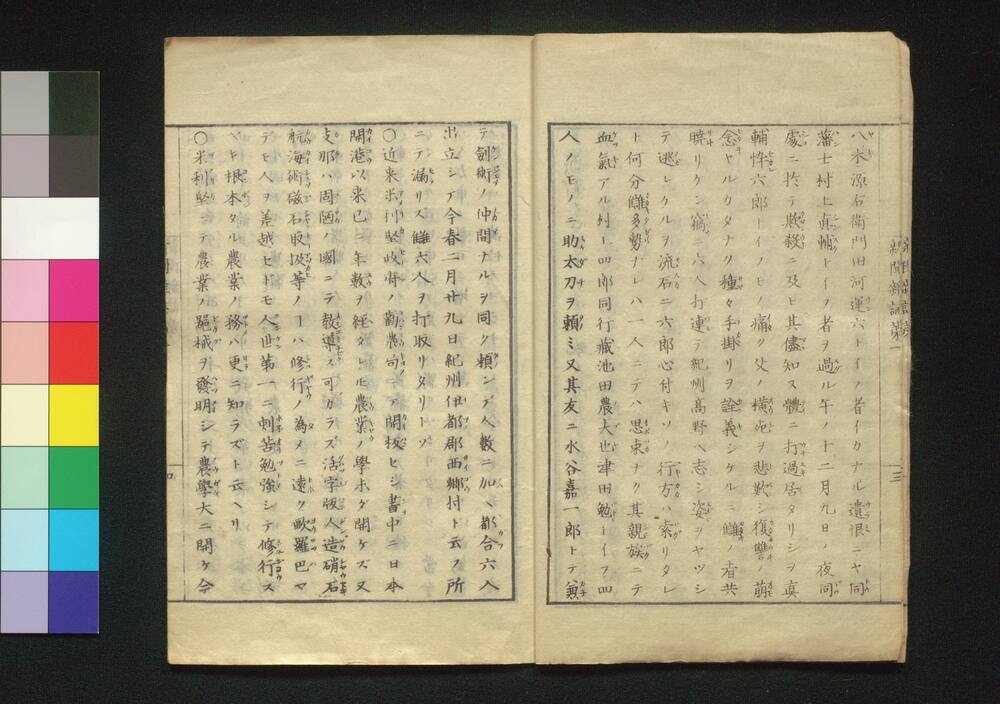 八木源右衛門田河運六トイフ者イカナル遺恨ニヤ同
藩士村上真輔トイフ者ヲ過ル午ノ十二月九日ノ夜同
處ニ於テ欺殺ニ及ヒ其儘知ス體ニ打過居タリシヲ真
輔忰六郎トイフモノ痛ク父ノ横死ヲ悲歎シ復讐ノ萌
念ヤルカタナク種々手掛リヲ詮義シケルニ讎ノ者共
暁リケン竊ニ六人打連テ紀州高野ヘ志シ姿ヲヤツシ
テ逃レケルヲ流石ニ六郎心付キソノ行方ハ索リタレ
ト何分讎多勢ナレハ一人ニテハ思束ナク其親族ニテ
血氣アル村上四郎同行蔵池田農夫也津田勉トイフ四
人ノモノニ助太刀ヲ頼ミ又其友ニ水谷嘉一郎トテ兼
テ劍術ノ仲間ナルヲ同ク頼ンテ人數ニ加ヘ都合六人
出立シテ今春二月廿九日紀州伊都郡西郷村ト云フ所
ニテ漏リス讎六人ヲ打取リタリトソ
〇近来米利堅政府ノ勸農司ニテ開板セシ書中ニ日本
開港以来已ニ年數ヲ經タレ𪜈農業ノ學ホダ開ケズ又
支那ハ固陋ノ國ニテ教導ス可カラス活字版人造硝石
航海術磁石取扱等ノヿハ修行ノ為メニ遠ク歐羅巴マ
テモ人ヲ差越セドモ人世第一ニ刺苦勉強シテ修行ス
ベキ根本タル農業ノ務ハ更ニ知ラズト云ヘリ
〇米利堅ニテ農業ノ器械ヲ發明シテ農學大ニ開ケ今
新聞雜誌第一
三